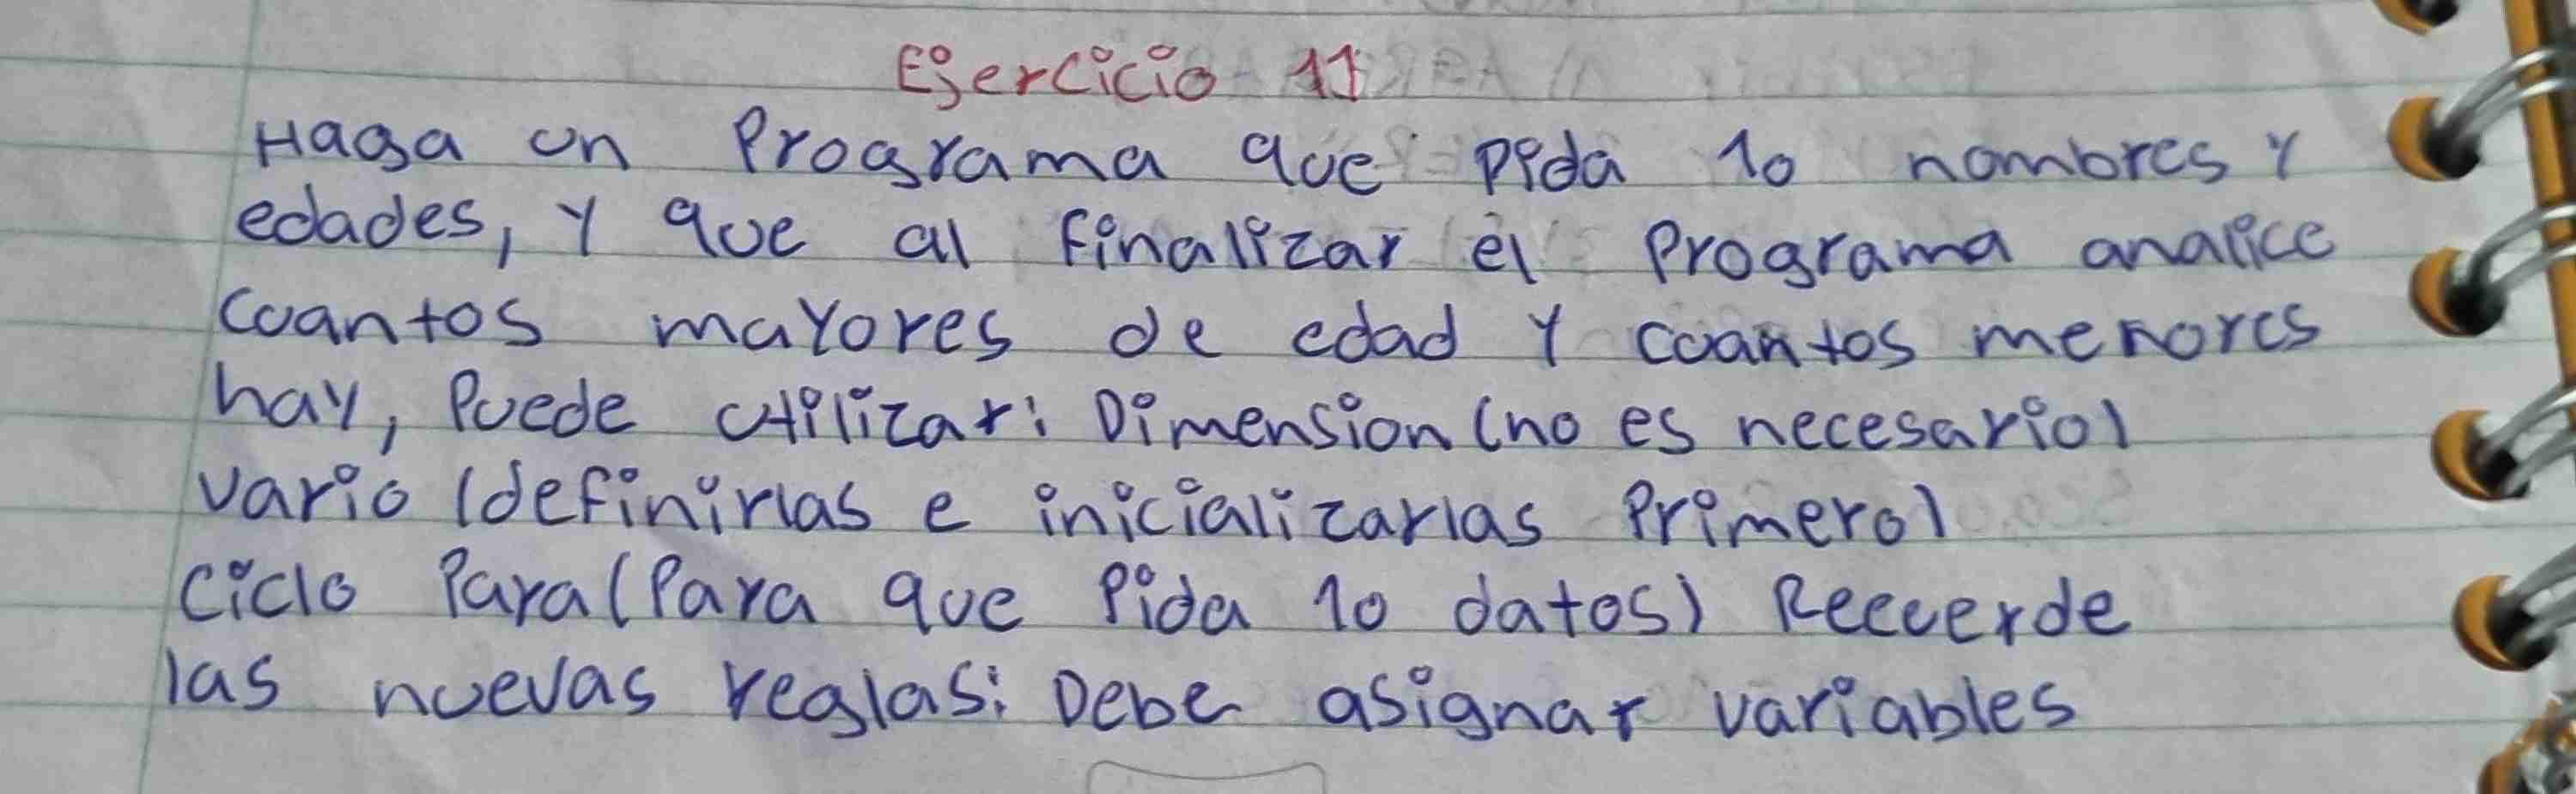 Ejercicio 11
Haga un Programa que pida 10 nombres y
edades, y que al finalizar el programa analice
cuantos mayores de edad y cuantos menores
hay, Puede utilizar: Dimension (no es necesario)
vario (definirlas e inicializarlas primero)
Ciclo Para (Para que Pida 10 datos) Recuerde
las nuevas reglas: Debe asignar variables